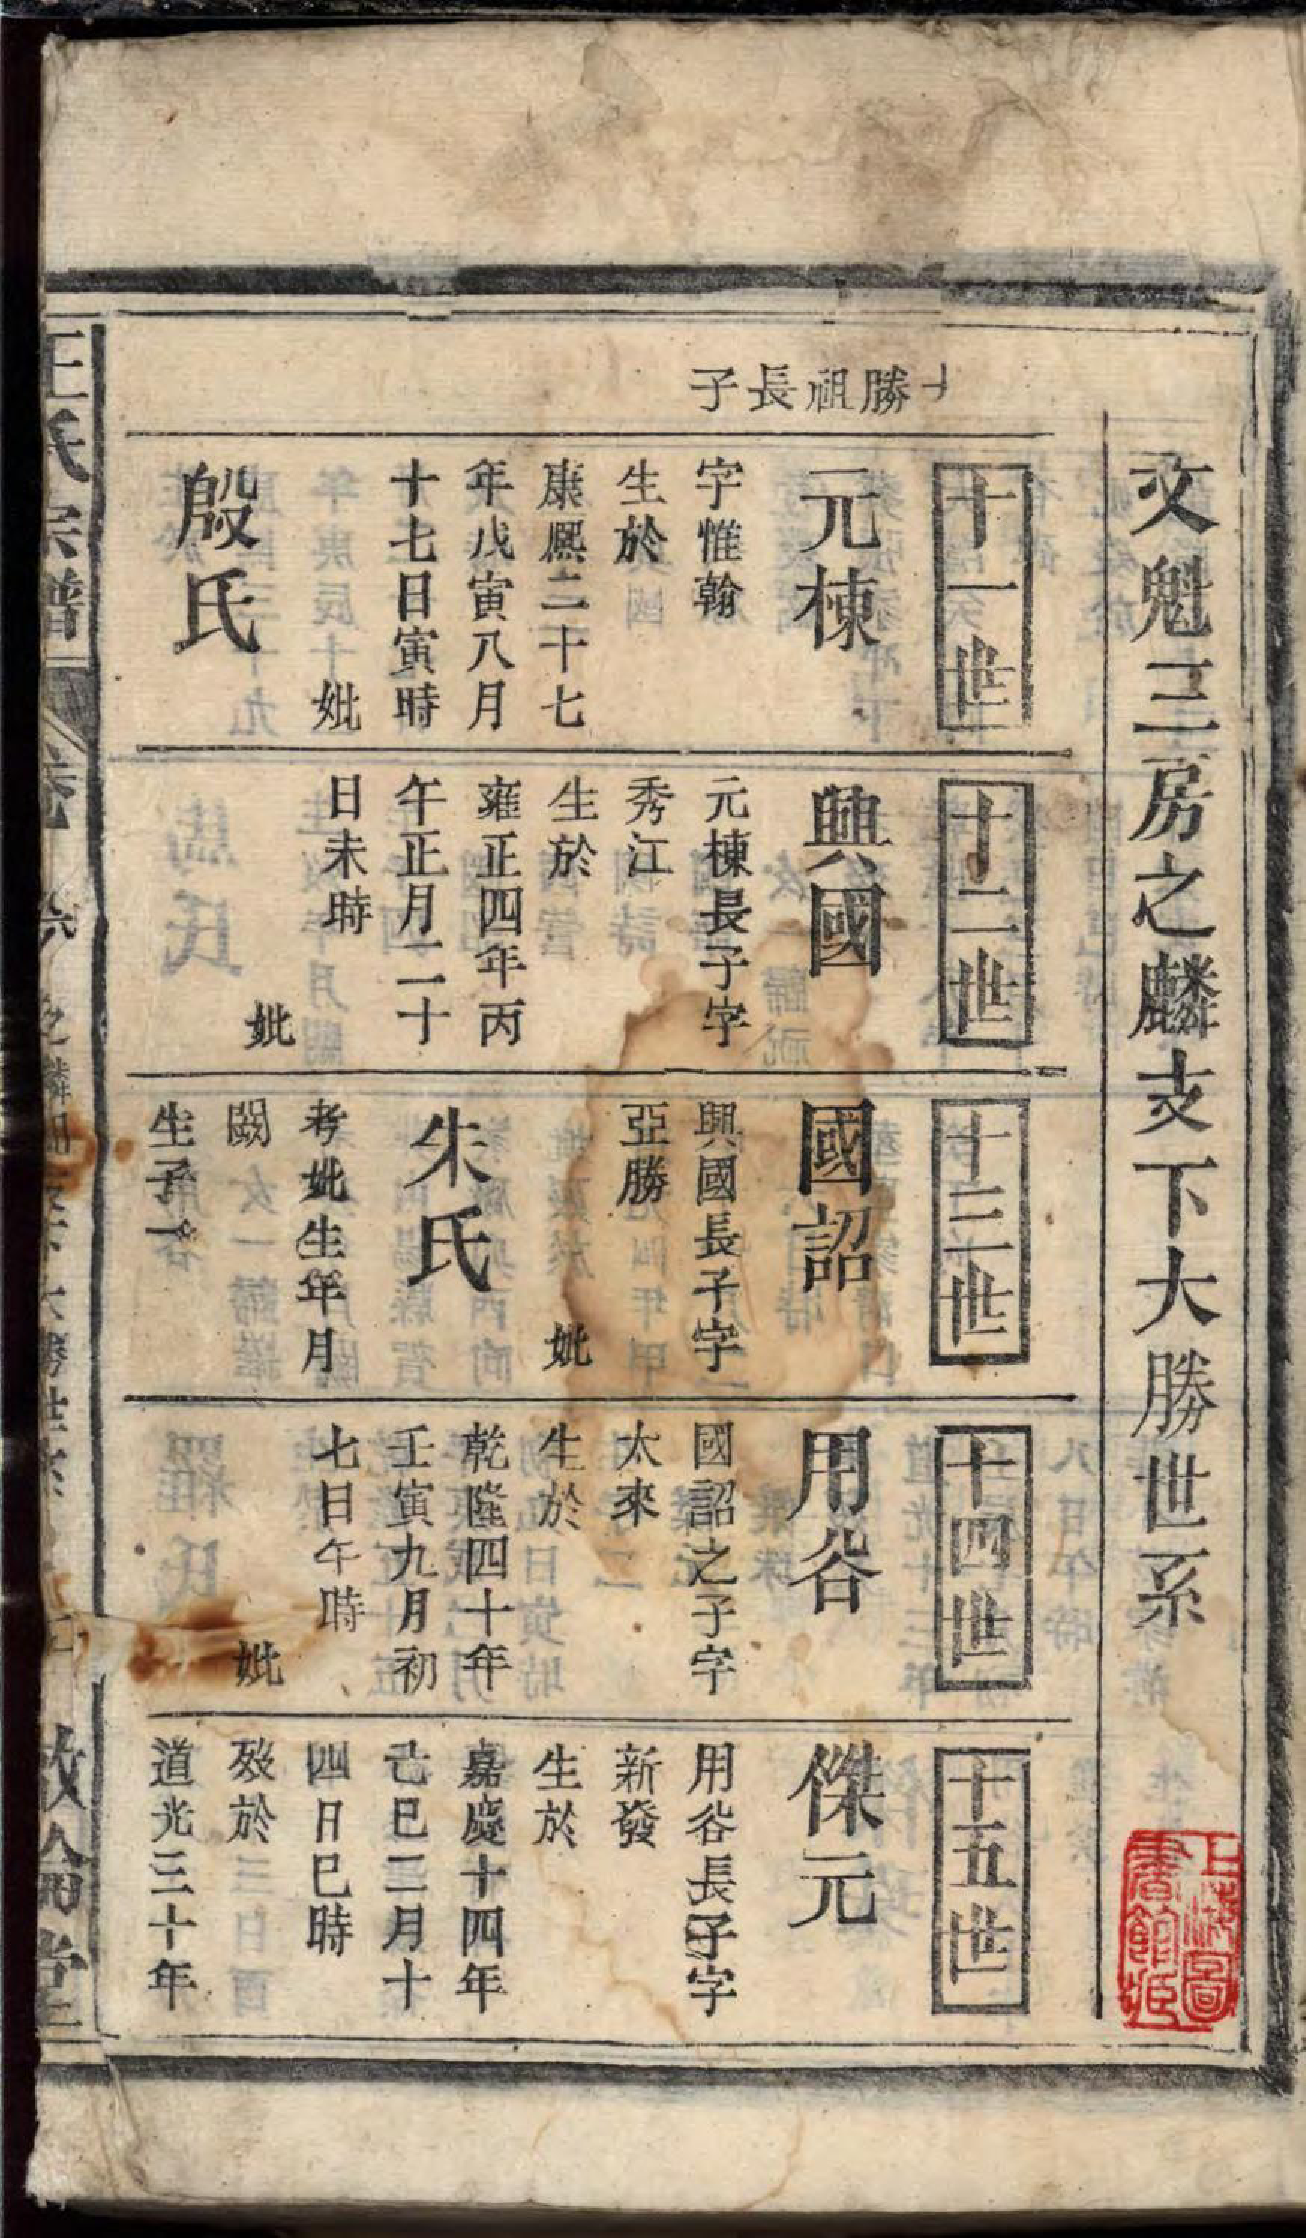 文魁三房之麟支下大勝世系
勝祖長子
十一世
元棟
字惟翰
生於
康熙二十七
年戊寅八月
十七日寅時
妣
殷氏
十二世
興國
元棟長子字
秀江
生於
雍正四年丙
午正月二十
日未時
妣
十三世
國詔
興國長子字
亞勝
妣
朱氏
考妣生年月
闕
生子一
十四世
用谷
國詔之子字
太來
生於
乾隆四十年
壬寅九月初
七日午時
妣
十五世
傑元
用谷長子字
新發
生於
嘉慶十四年
己巳二月十
四日巳時
歿於
道光三十年
王氏宗譜
卷六
之麟支下大勝世系
敦倫堂
上海圖書館藏